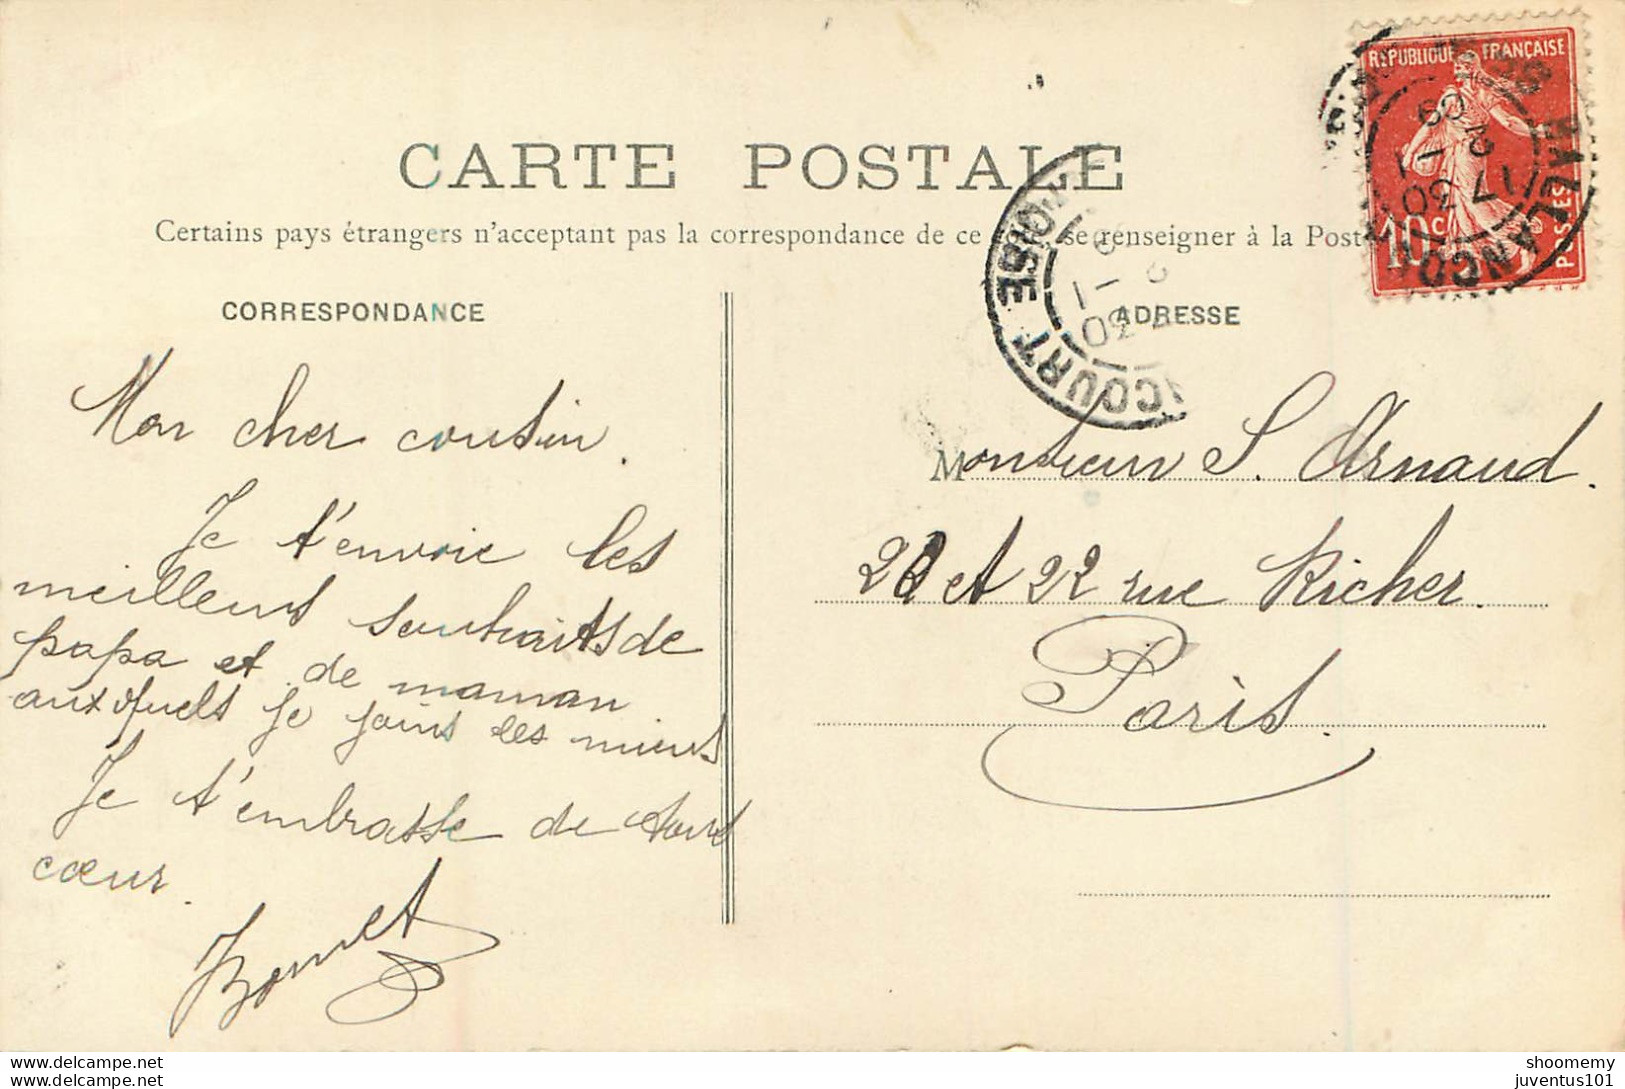 CARTE POSTALE
Certains pays étrangers n'acceptant pas la correspondance de ce se renseigner à la Post
CORRESPONDANCE
Mon cher cousin.
Je t'envoie les
meilleurs souhaits de
papa et de maman
auxquels je joins les miens
Je t'embrasse de tout
cœur.
Bonnet
RÉPUBLIQUE FRANÇAISE
10 c.
POSTES
BALLANCOURT
17 30
2 - 1
09
COURT
OISE
30
ADRESSE
Monsieur S. Arnaud.
20 et 22 rue Richer.
Paris.
www.delcampe.net
www.delcampe.net
shoomemy
juventus101